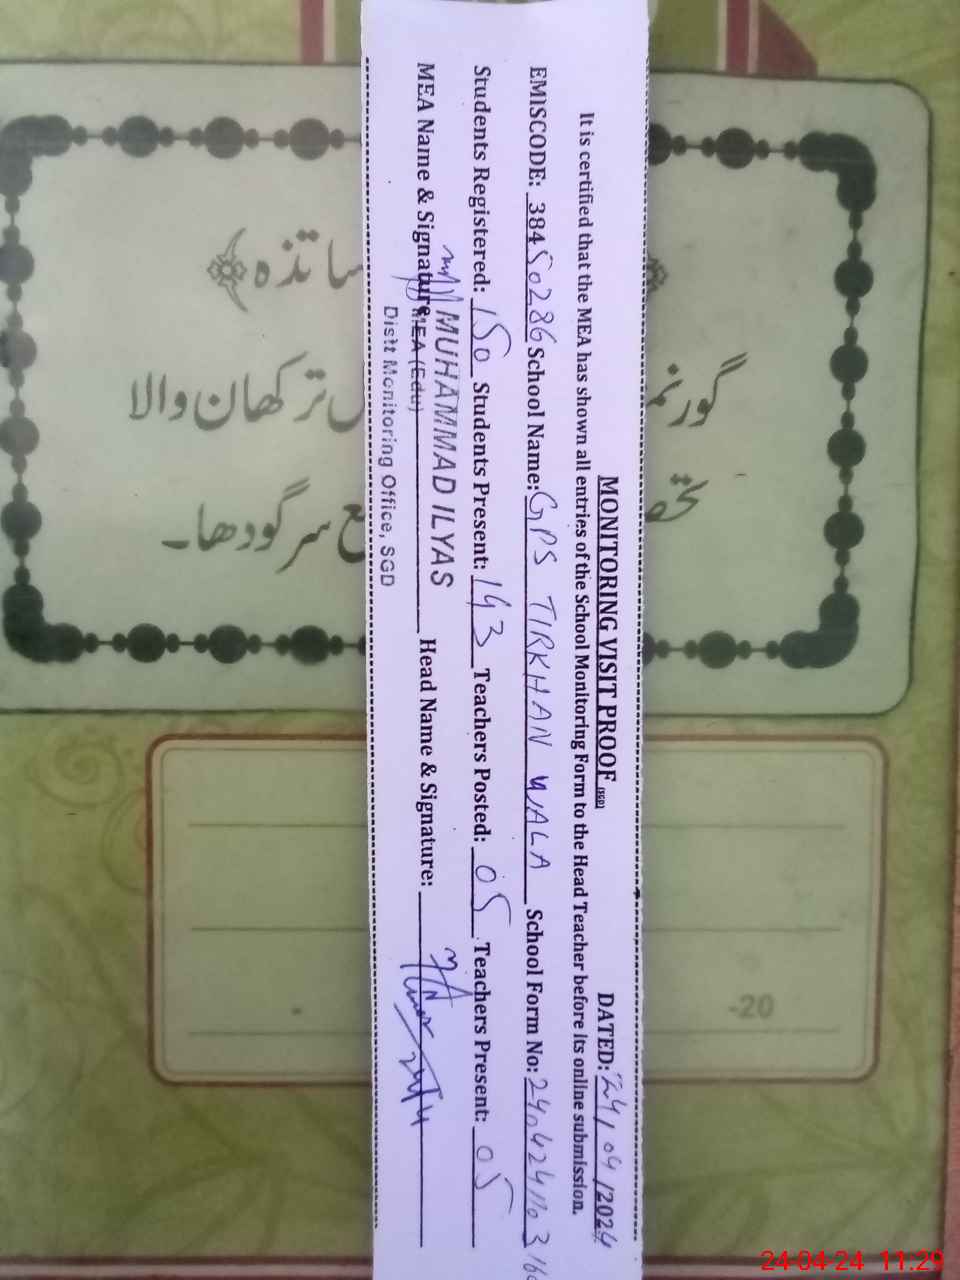 MONITORING VISIT PROOF (SGD) DATED: 24/04/2024
It is certified that the MEA has shown all entries of the School Monitoring Form to the Head Teacher before its online submission.
EMISCODE: 38450286 School Name: GPS TIRKHAN WALA School Form No:
Students Registered: 150 Students Present: 143 Teachers Posted: 05 Teachers Present: 05
MEA Name & Signature: MUHAMMAD ILYAS Head Name & Signature:
MEA (Edu)
Distt Monitoring Office, SGD
ترکھان والا
سرگودھا۔
-20
24-04-24 11:29